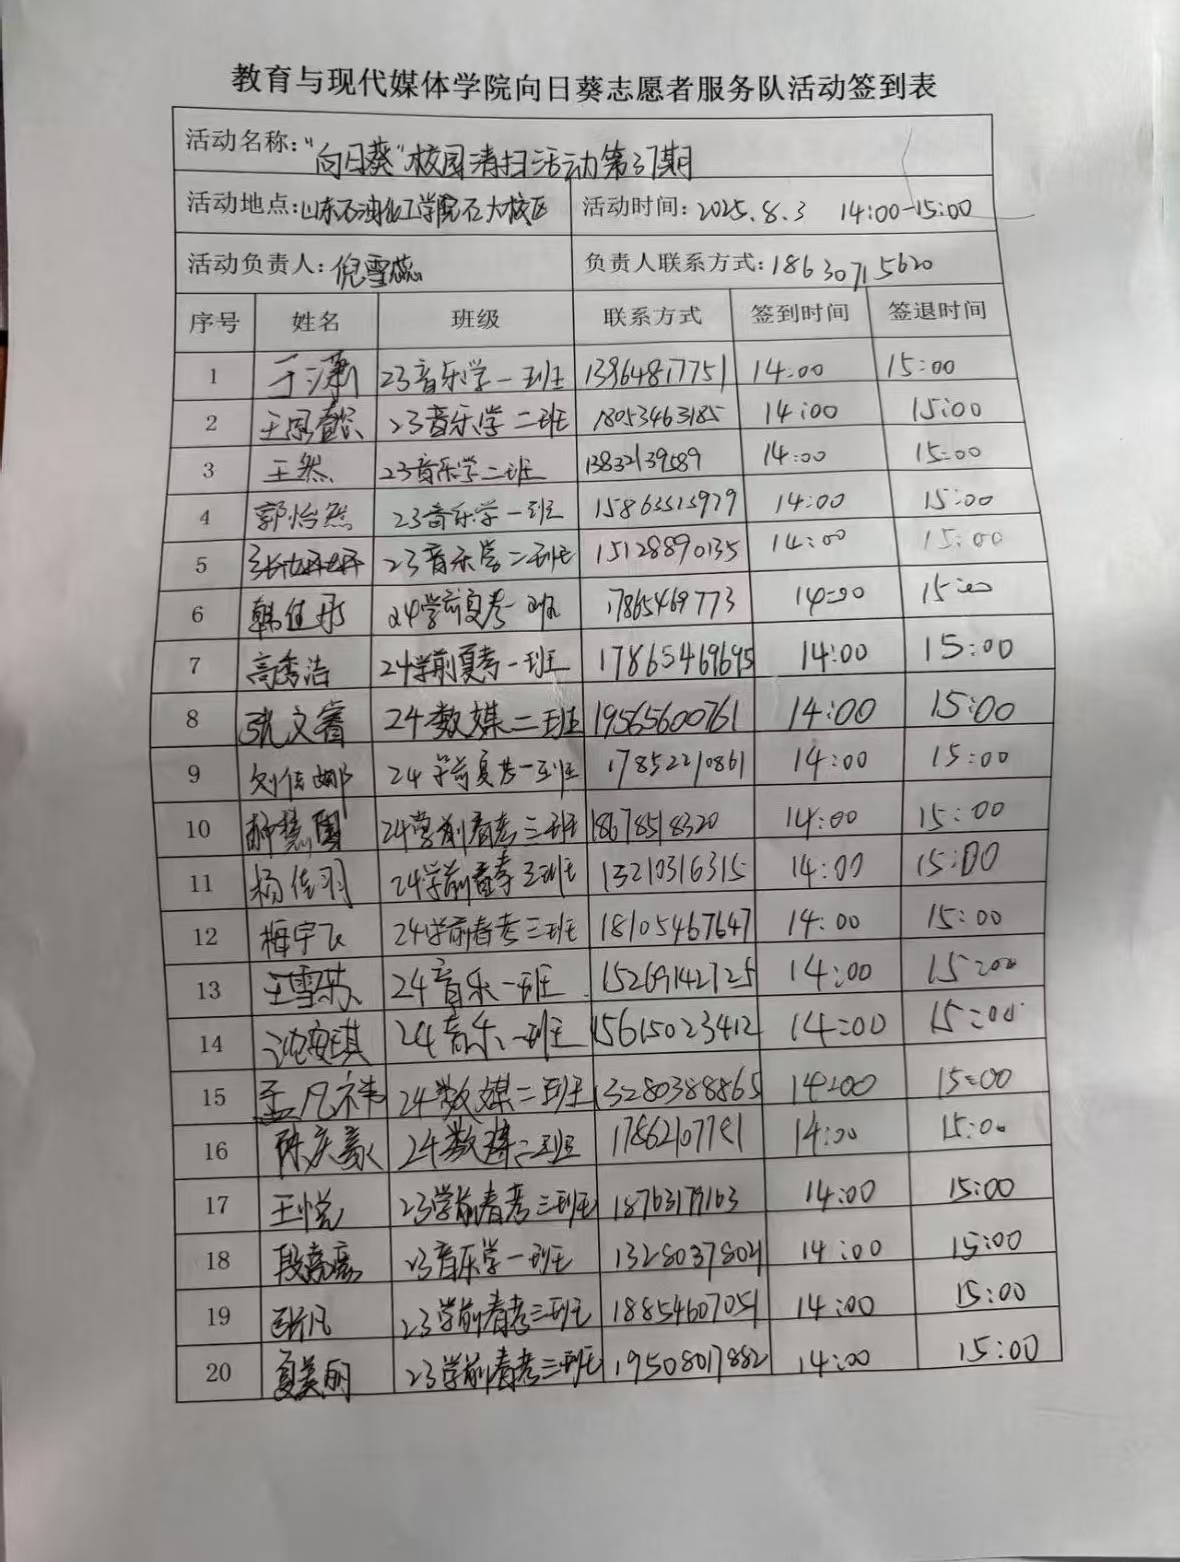 教育与现代媒体学院向日葵志愿者服务队活动签到表
活动名称:"向日葵"校园清扫活动第37期
活动地点:山东石油化工学院石大校区 活动时间: 2025.8.3 14:00-15:00
活动负责人:倪雪蕊 负责人联系方式:18630715620
序号 姓名 班级 联系方式 签到时间 签退时间
1 于潇 23音乐学一班 13964817751 14:00 15:00
2 王思懿 23音乐学二班 18053463185 14:00 15:00
3 王然 23音乐学二班 14:00 15:00
4 郭怡然 23音乐学一班 15863513979 14:00 15:00
5 张冉冉 23音乐学二班 15128890135 14:00 15:00
6 韩佳彤 24学前夏考一班 17865469773 14:00 15:00
7 高秀洁 24学前夏考一班 17865469695 14:00 15:00
8 张文睿 24数媒二班 19565600761 14:00 15:00
9 刘佳娜 24学前夏考一班 17852210861 14:00 15:00
10 24学前春考三班 18678518320 14:00 15:00
11 杨佳羽 24学前春考三班 13210316315 14:00 15:00
12 梅宇飞 24学前春考三班 18105467647 14:00 15:00
13 王雪茹 24音乐一班 15269142725 14:00 15:00
14 沈安琪 24音乐一班 15615023412 14:00 15:00
15 孟凡祎 24数媒二班 13280388865 14:00 15:00
16 陈庆豪 24数媒二班 14:00 15:00
17 王悦 23学前春考三班 18763179163 14:00 15:00
18 23音乐学一班 13280378021 14:00 15:00
19 23学前春考三班 18854607051 14:00 15:00
20 夏美丽 23学前春考三班 19508017882 14:00 15:00